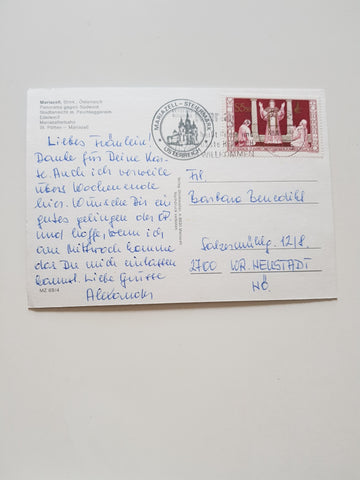 Mariazell, Stmk., Österreich
Panorama gegen Südwest
Stadtansicht m. Feichteggerwirt
Edelweiß
Mariazellerbahn
St. Pölten — Mariazell
MARIAZELL - STEIERMARK
ÖSTERREICH
WILLKOMMEN
Liebes Fräulein!
Danke für Deine Kar-
te. Auch ich verweile
übers Wochenende
hier. Wünsche Dir ein
gutes gelingen der OP
und hoffe, wenn ich
am Mittwoch komme
das Du mich einlassen
kannst. Liebe Grüsse
Alexander
Frl
Barbara Benedikt
12/8.
2700 WR. NEUSTADT
NÖ.
MZ 69/4